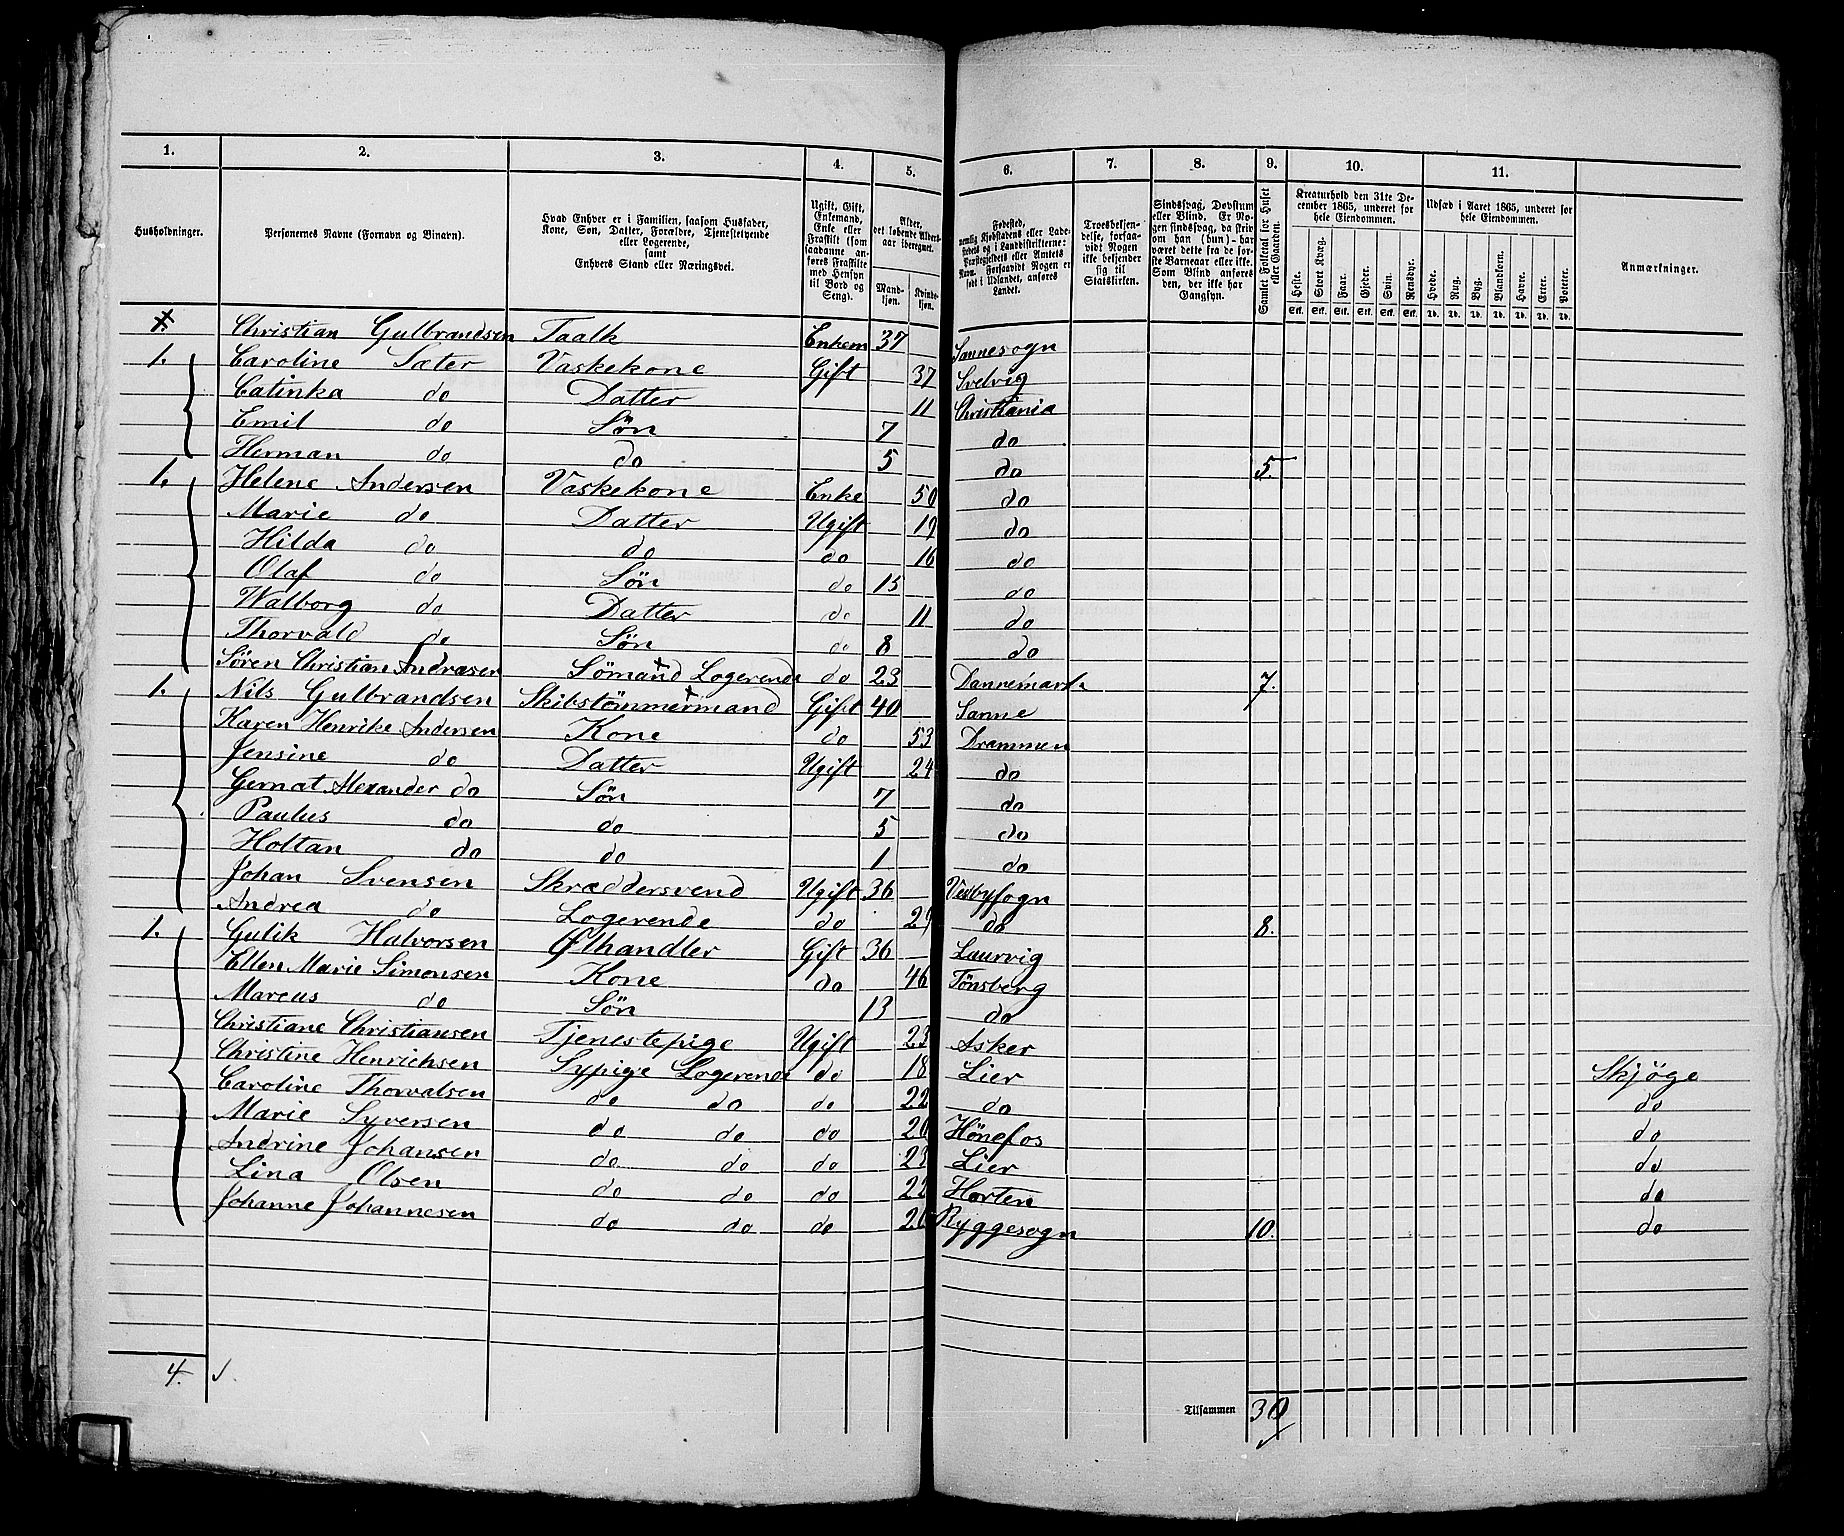 1. 2. 3. 4. 5. 6. 7. 8. 9. 10. 11.
Husholdninger.
Personernes Navne (Fornavn og Binavn).
Hvad Enhver er i Familien, saasom Husfader,
Kone, Søn, Datter, Forældre, Tjenestetyende
eller Logerende,
samt
Enhvers Stand eller Næringsvei.
Ugift, Gift,
Enkemand,
Enke eller
Fraskilt (som
saadanne an-
føres Fraskilte
med Hensyn
til Bord og
Seng).
Alder,
det løbende Alders-
aar iberegnet.
Mand-
kjøn.
Kvinde-
kjøn.
Fødested,
nemlig Kjøbstadens eller Lade-
stedets og i Landdistrikterne:
Præstegjeldets eller Amtets
Navn. Forsaavidt Nogen er
født i Udlandet, anføres
Landet.
Troesbekjen-
delse, forsaa-
vidt Nogen
ikke bekjender
sig til
Statskirken.
Sindssvag, Døvstum
eller Blind. Er No-
gen sindssvag, da skriv
om han (hun) har
været dette fra de før-
ste Barneaar eller ikke.
Som Blind anføres
den, der ikke har
Gangsyn.
Samlet Folketal for Huset
eller Gaarden.
Kreaturhold den 31te De-
cember 1865, underet for
hele Eiendommen.
Heste. Stort Kvæg. Faar. Gjeder. Svin. Rensdyr.
Stk. Stk. Stk. Stk. Stk. Stk.
Udsæd i Aaret 1865, underet for
hele Eiendommen.
Hvede. Rug. Byg. Blandkorn. Havre. Erter. Poteter.
Td. Td. Td. Td. Td. Td. Td.
Anmærkninger.
Christian Gulbrandsen Taalk Enkem 37 Sannesogn
1. Caroline Sæter Vaskekone Gift 37 Svelvig
Catinka do Datter 11 Christiania
Emil do Søn 7 do
Herman do do 5 do 5.
1. Helene Andersen Vaskekone Enke 50 do
Marie do Datter Ugift 19 do
Hilda do do do 16 do
Olaf do Søn do 15 do
Walborg do Datter do 11 do
Thorvald do Søn do 8 do
Søren Christian Andrasen Sömand Logerende do 23 Dannemark 7.
1. Nils Gulbrandsen Skibstömmermand Gift 40 Sanne
Karen Henrike Andersen Kone do 53 Drammen
Jensine do Datter Ugift 24 do
Gernat Alexander do Søn 7 do
Paulus do do 5 do
Holtan do do 1 do
Johan Svensen Skræddersvend Ugift 36 Vedbysogn
Andrea do Logerende do 29 do 8.
1. Gulik Halvorsen Ølhandler Gift 36 Laurvig
Ellen Marie Simonsen Kone do 46 Tönsberg
Marcus do Søn 13 do
Christiane Christiansen Tjenestepige Ugift 23 Asker
Christine Henrichsen Sypige Logerende do 18 Lier Skjøge
Caroline Thorvalsen do do do 22 do do
Marie Syversen do do do 20 Hönefos do
Andrine Johansen do do do 23 Lier do
Lina Olsen do do do 22 Horten do
Johanne Johannesen do do do 20 Ryggesogn 10. do
4.
Tilsammen 30